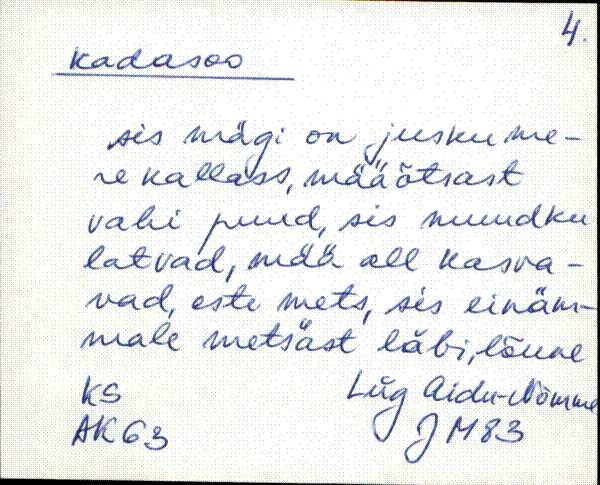 4.
kadasoo
sis mägi on jusku me-
re kallass, määõtsast
vahi puud, sis muudku
latvad, mää all kasva-
vad, este mets, sis einäm-
male metsäst läbi, lõune
KS Lüg Aidu-Nõmme
AK63 JM83